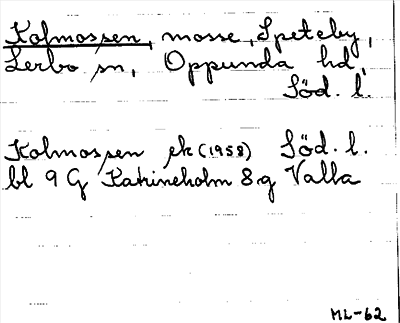 Kolmossen, mosse, Speteby,
Lerbo sn, Oppunda hd,
Söd. l.
Kolmossen ek (1958) Söd. l.
bl 9 G Katrineholm 8 g Valla
ML-62